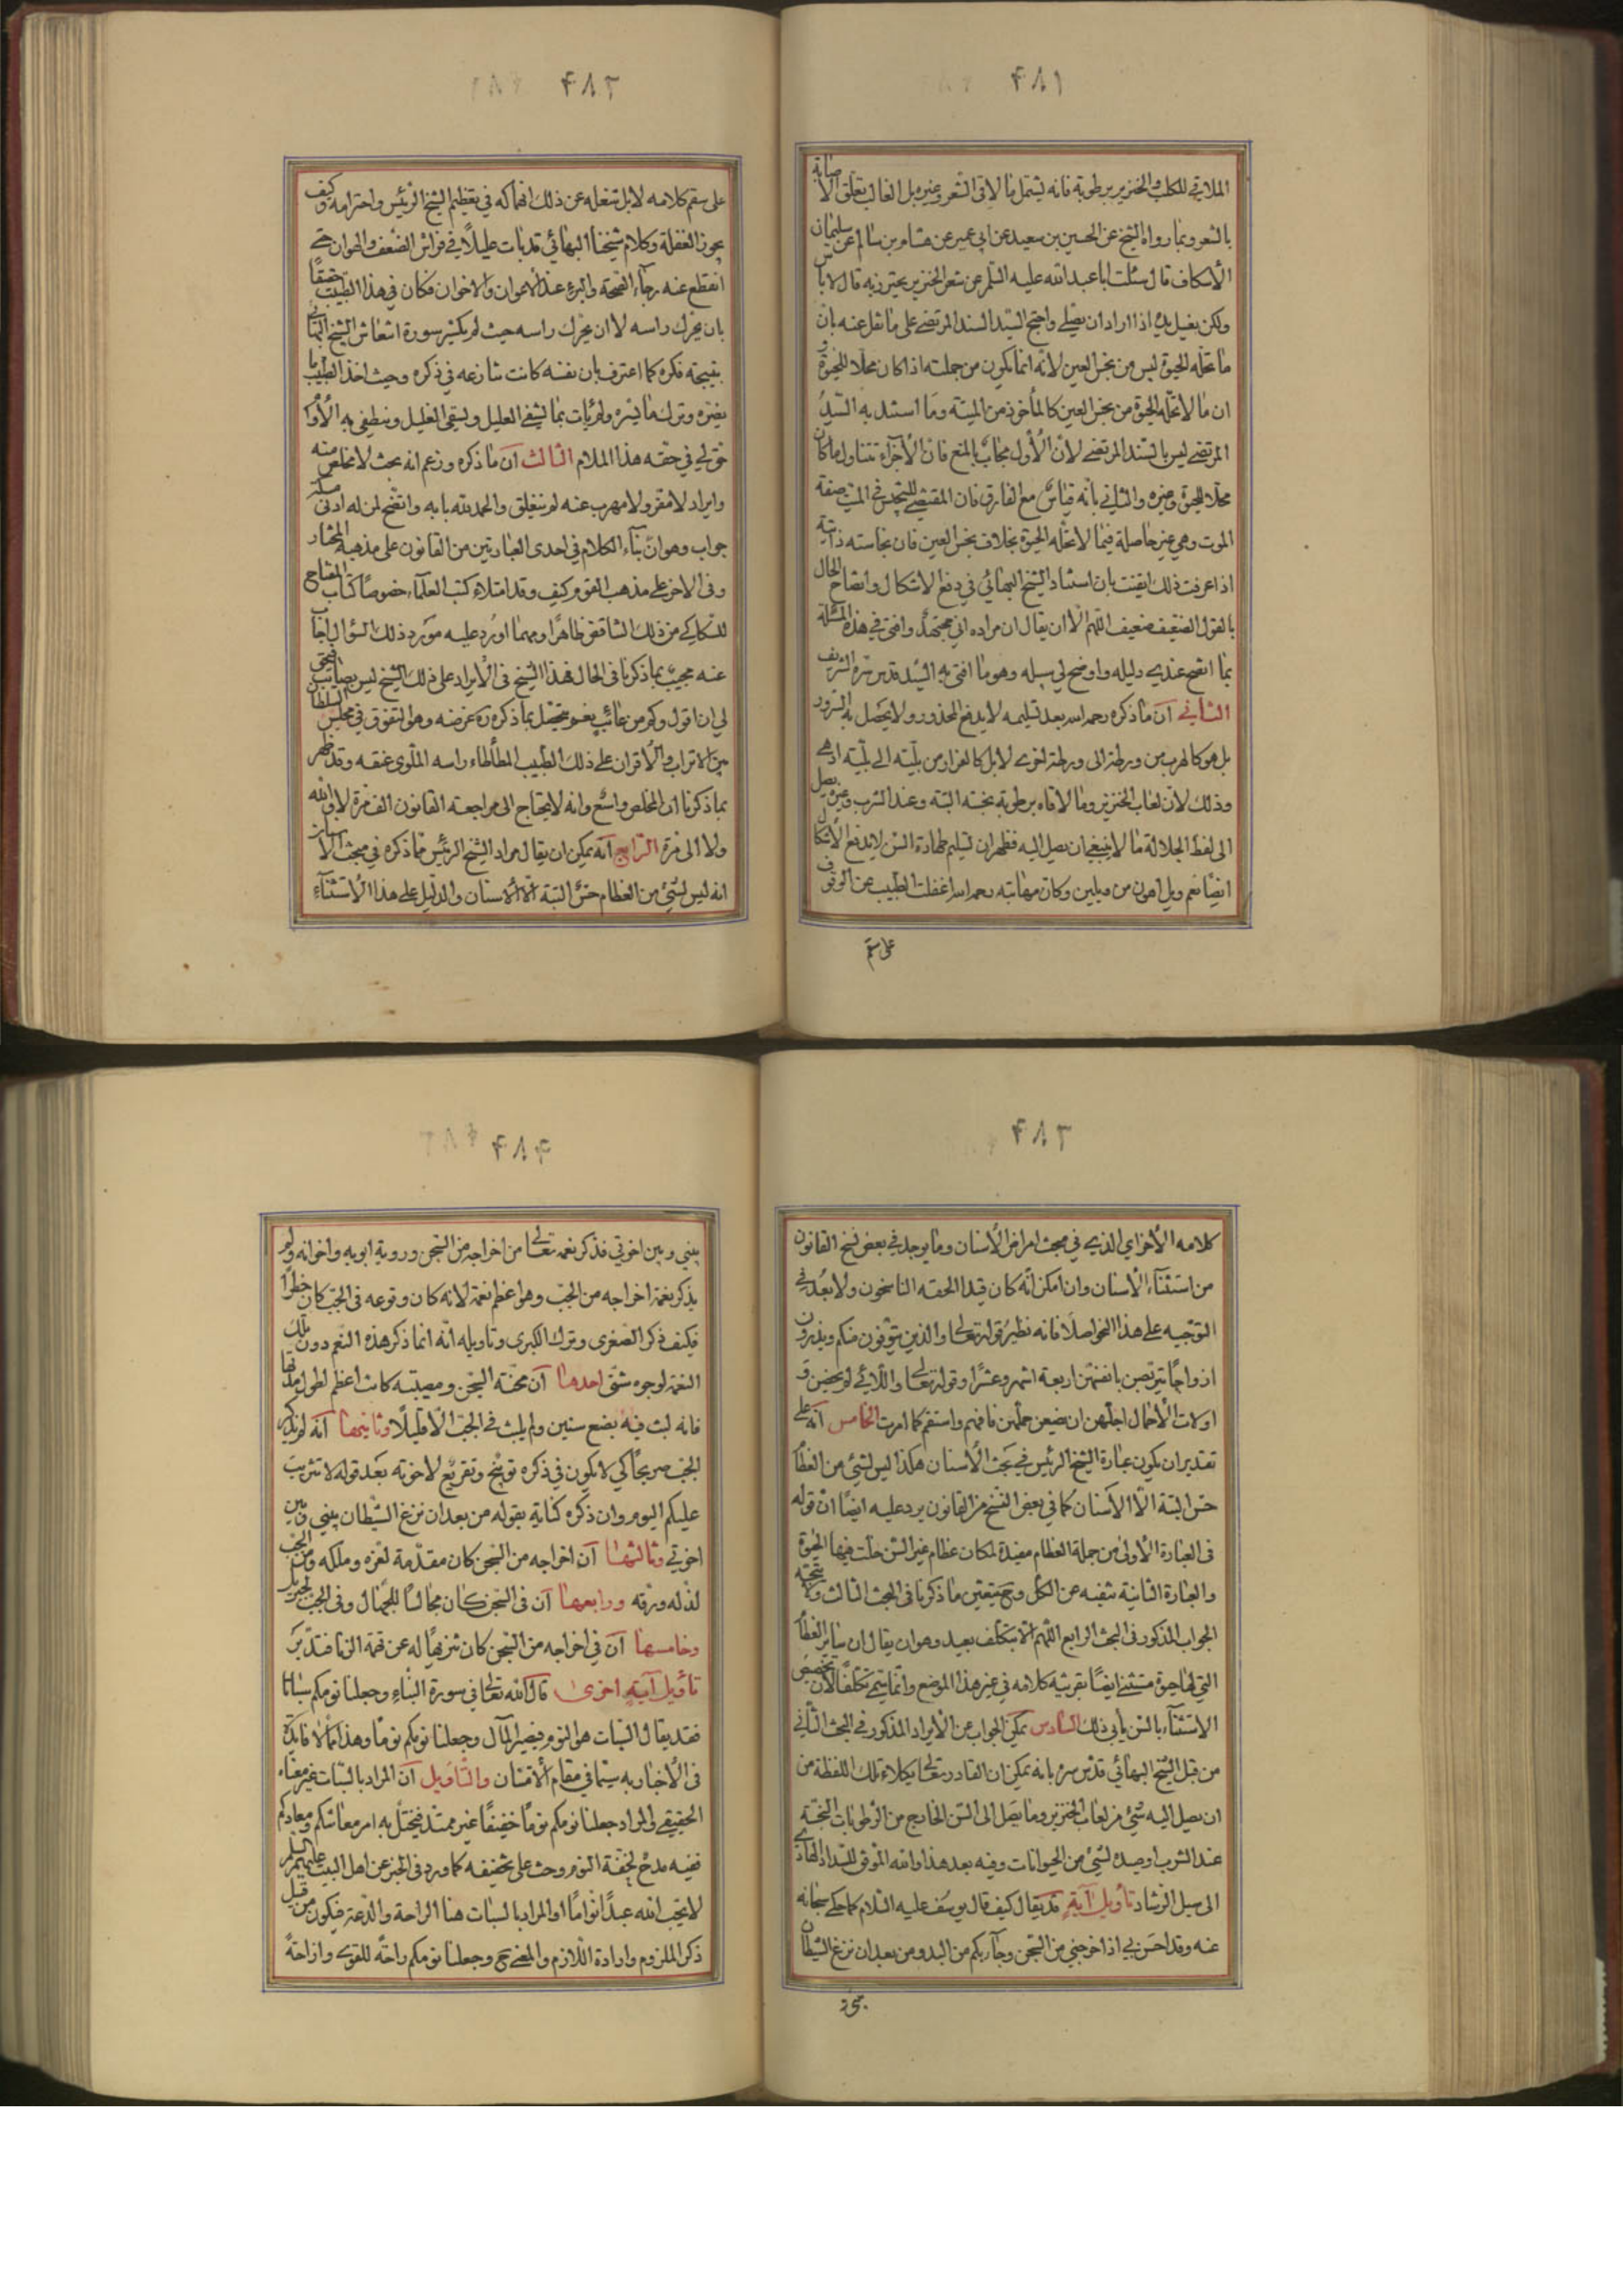 ۴۸۱
الملاقي للكلب والخنزير برطوبة فانه يشتمل ما لاقى الشعر وغيره بل الغالب تعلق الاصابة
بالشعر وبما رواه الشيخ عن الحسين بن سعيد عن ابي عمير عن هشام بن سالم عن سليمان
الاسكاف قال سئلت ابا عبد الله عليه السلم عن شعر الخنزير يخرز به قال لا باس
ولكن يغسل يده اذا اراد ان يصلي واحتج السيد السند المرتضى على ما نقل عنه بان
ما تحله الحيوة ليس من نجس العين لانه انما يكون من جملته اذا كان محلا للحيوة و
ان ما لا تحله الحيوة من نجس العين كالمأخوذ من الميتة وما استند به السيد
المرتضى ليس بالسند المرتضى لان الاول مجاب بالمنع فان الاجزاء تتناول ما كان
محلا للحيوة وغيره والثاني بانه قياس مع الفارق فان المقتضي للتنجس في الميت صفة
الموت وهي غير حاصلة فيما لا تحله الحيوة بخلاف نجس العين فان نجاسته ذاتية
اذا عرفت ذلك ايقنت بان استناد الشيخ البهائي في دفع الاشكال وايضاح الحال
بالقول الضعيف ضعيف اللهم الا ان يقال ان مراده اني مجتهد وافتي في هذه المسئلة
بما اتضح عندي دليله واوضح لي سبيله وهو ما افتى به السيد قدس سره الشريف
الثاني ان ما ذكره رحمه الله بعد تسليمه لا يدفع المحذور ولا يحصل به السرور
بل هو كالهرب من ورطة الى ورطة اخرى لا بل كالفرار من بلية الى بلية ادهى
وذلك لان لعاب الخنزير وما لاقاه برطوبة نجسة البتة وعند الشرب وغيره يصل
الى لفظ الجلالة ما لا ينبغي ان يصل اليه فظهر ان تسليم طهارة السن لا يدفع الاشكال
ايضا نعم ويل اهون من ويلين وكان مهابته رحمه الله اغفلت الطبيب عن الوقوف
على سقم
۴۸۲
على سقم كلامه لا بل شغله عن ذلك انهماكه في تعظيم الشيخ الرئيس واحترامه وكيف
يجوز الغفلة وكلام شيخنا البهائي قد بات عليلا في فراش الضعف والهوان حتى
انقطع عنه رجاء الصحة والبرء عند الاعوان والاخوان فكان في هذا الطبيب حقيقا
بان يحرك راسه لا ان يحرك راسه حيث لم يكسر سورة الشيخ البهائي
بنتيجة فكره كما اعترف بان نفسه كانت تنازعه في ذكره وحيث اخذ الطبيب ما
يضره وترك ما يسره ولم يات بما يشفي العليل ويسقي الغليل وينطفي به الاوا
حق لي في حقه هذا الملام الثالث ان ما ذكره وزعم انه بحث لا مخلص منه
وايراد لا مفر ولا مهرب عنه لم ينغلق والحمد لله بابه واتضح لمن له ادنى مسكة
جواب وهو ان بناء الكلام في احدى العبارتين من القانون على مذهبه المختار
وفي الاخر على مذهب القوم وكيف وقد امتلاء كتب العلماء خصوصا كتاب المفتاح
للسكاكي من ذلك التناقض ظاهرا ومهما اورد عليه مورد ذلك السؤال اجاب
عنه مجيب بما ذكرنا في الحال فهذا الشيخ في الايراد على ذلك الشيخ ليس بصائب فحق
لي ان اقول وكم من عائب نعم يتحصل بما ذكره ره غرضه وهو التفوق في مجلس السلطان
بين الاتراب والاقران على ذلك الطبيب المطأطاء راسه الملوي عنقه وقد ظهر
بما ذكرنا ان المخلص واسع وانه لا يحتاج الى مراجعة القانون الف مرة لا والله
ولا الى مرة الرابع انه يمكن ان يقال مراد الشيخ الرئيس مما ذكره في مبحث الاسنان
انه ليس لشئ من العظام حس البتة الا الاسنان والدليل على هذا الاستثناء
۴۸۳
كلامه الاخر اي الذي في مبحث امراض الاسنان وما يوجد في بعض نسخ القانون
من استثناء الاسنان وان امكن انه كان قيدا الحقه الناسخون ولا بعد في
التوجيه على هذا النحو اصلا فانه نظير قوله تعالى والذين يتوفون منكم ويذرون
ازواجا يتربصن بانفسهن اربعة اشهر وعشرا وقوله تعالى واللائي لم يحضن و
اولات الاحمال اجلهن ان يضعن حملهن فافهم واستقم كما امرت الخامس انه على
تقدير ان يكون عبارة الشيخ الرئيس في بحث الاسنان هكذا ليس لشئ من العظا
حس البتة الا الاسنان كما في بعض النسخ من القانون يرد عليه ايضا ان قوله
في العبارة الاولى من جملة العظام مفيدة لمكان عظام غير السن حلت فيها الحيوة
والعبارة الثانية تنفيه عن الكل وح يتعين ما ذكرنا في البحث الثالث ولا يتجه
الجواب المذكور في البحث الرابع اللهم الا بتكلف بعيد وهو ان يقال ان سائر العظا
التي لها حيوة مستثنى ايضا بقرينة كلامه في غير هذا الموضع وانما سمي تكلفا لان تخصيص
الاستثناء بالسن يابى ذلك السادس يمكن الجواب عن الايراد المذكور في البحث الثاني
من قبل الشيخ البهائي قدس سره بانه يمكن ان القادر تعالى يكلاء تلك اللفظة من
ان يصل اليه شئ من لعاب الخنزير وما يصل الى السن الخارج من الرطوبات النجسة
عند الشرب او صيده لشئ من الحيوانات وفيه بعد هذا والله الموفق للسداد الهادي
الى سبيل الرشاد تأويل آية قد يقال كيف قال يوسف عليه السلام كما حكى سبحانه
عنه وقد احسن بي اذ اخرجني من السجن وجاء بكم من البدو من بعد ان نزغ الشيطان
بيني و
۴۸۴
بيني وبين اخوتي فذكر نعمه تعالى من اخراجه من السجن وروية ابويه واخوانه ولم
يذكر نعمة اخراجه من الجب وهو اعظم نعمة لانه كان وقوعه في الجب كان خطرا
فكيف ذكر الصغرى وترك الكبرى وتاويله انه انما ذكر هذه النعم دون تلك
النعمة لوجوه شتى احدها ان محنته السجن ومصيبته كانت اعظم لطول مدتها
فانه لبث فيه بضع سنين ولم يلبث في الجب الا قليلا وثانيها انه لم يذكر
الجب صريحا كي لا يكون في ذكره توبيخ وتقريع لاخوته بعد قوله لا تثريب
عليكم اليوم وان ذكره كناية بقوله من بعد ان نزغ الشيطان بيني وبين
اخوتي وثالثها ان اخراجه من السجن كان مقدمة لعزه وملكه ومن الجب
لذله ورقه ورابعها ان في السجن كان مجالسا للجهال وفي الجب لجبريل
وخامسها ان في اخراجه من السجن كان تنزيها له عن تهمة الزنا فتدبر
تأويل آية اخرى قال الله تعالى في سورة النباء وجعلنا نومكم سباتا
فقد يقال السبات هو النوم فيصير المآل وجعلنا نومكم نوما وهذا مما لا فايدة
في الاخبار به سيما في مقام الامتنان والتاويل ان المراد بالسبات غير معناه
الحقيقي والمراد جعلنا نومكم نوما خفيفا غير ممتد فيختل به امر معاشكم ومعادكم
ففيه مدح لخفة النوم وحث على تخفيفه كما ورد في الخبر عن اهل البيت عليهم السلم
لا يحب الله عبدا نواما او المراد بالسبات هنا الراحة والدعة فيكون من قبيل
ذكر الملزوم وارادة اللازم والمعنى ح وجعلنا نومكم راحة للقوى وازاحة